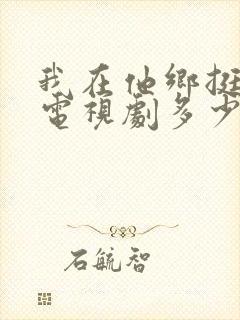 我在他鄉挺
電視劇多少
石毓智